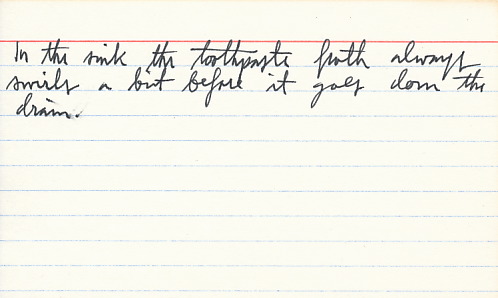 In the sink the toothpaste froth always
swirls a bit before it goes down the
drain.